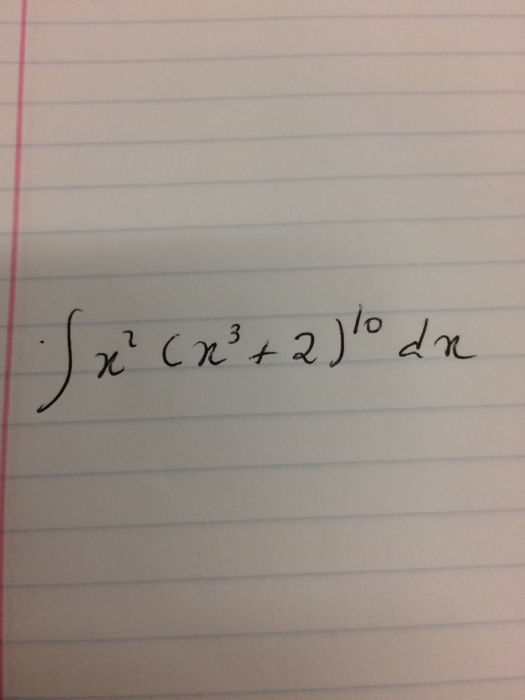 ∫ x² (x³ + 2)¹⁰ dx